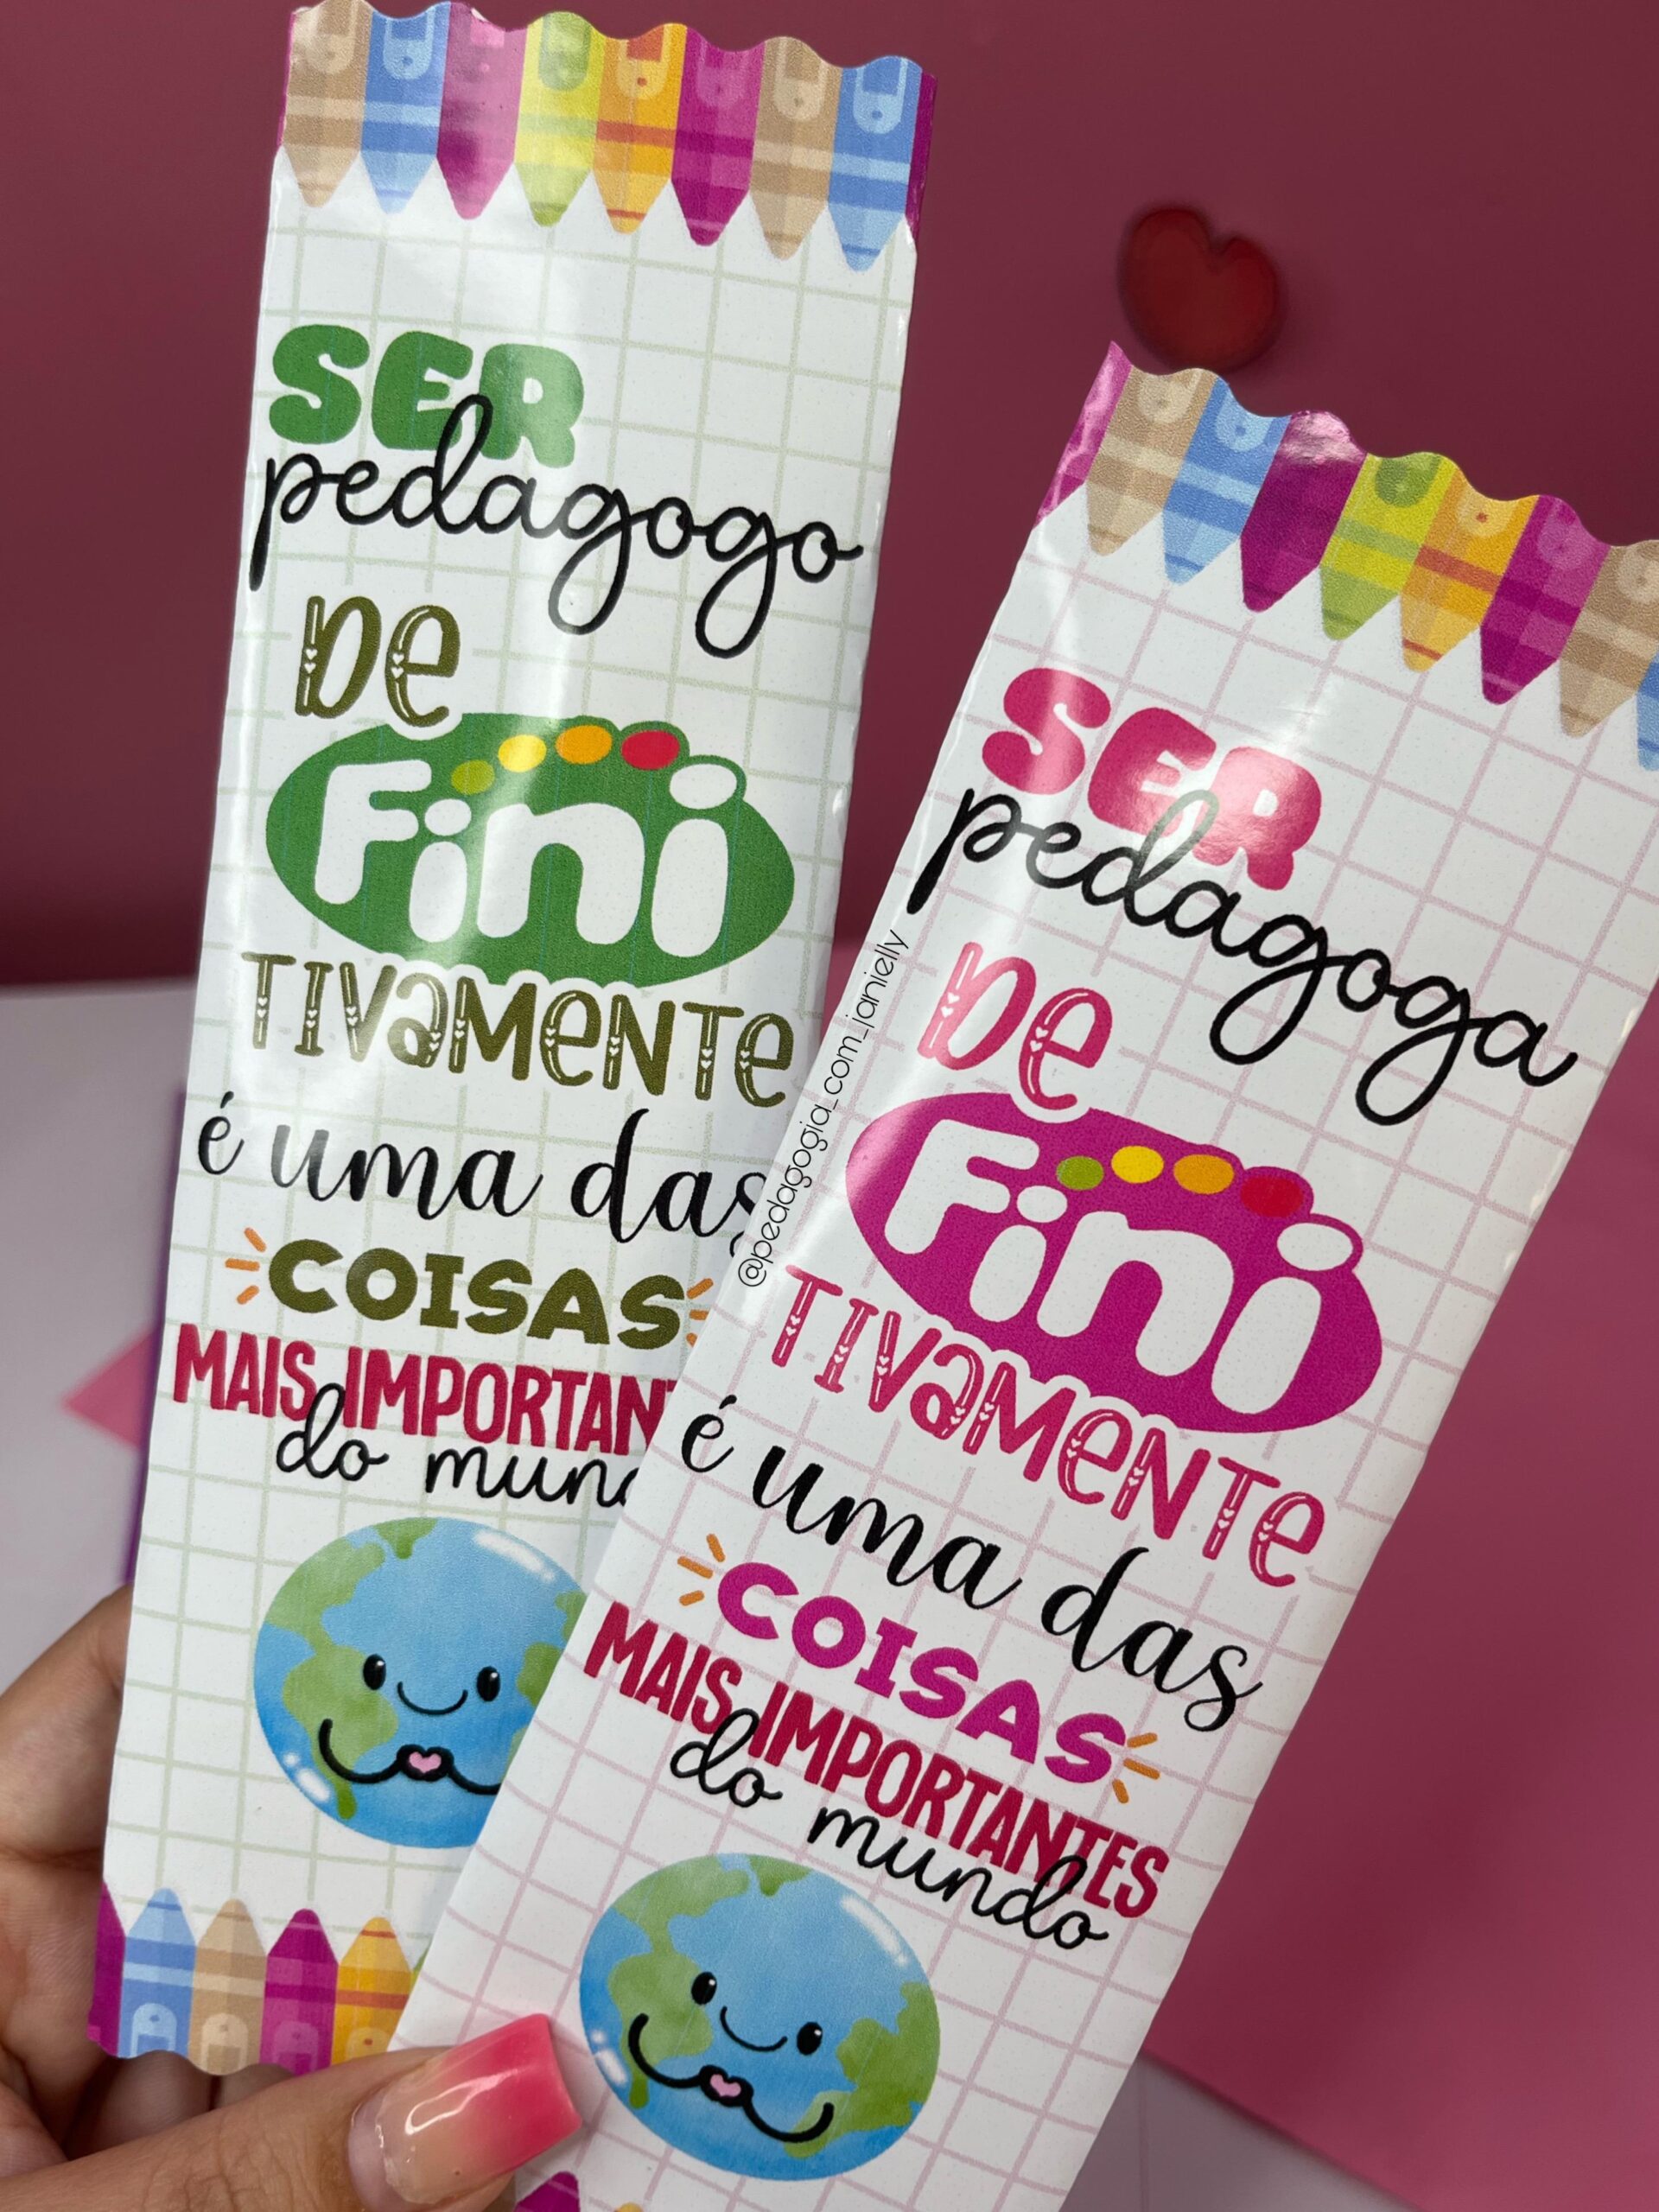 SER
pedagogo
DE
Fini
TIVAMENTE
é uma das
COISAS
MAIS IMPORTAN
do mun
@pedagogia_com_janielly
SER
pedagoga
DE
Fini
TIVAMENTE
é uma das
COISAS
MAIS IMPORTANTES
do mundo